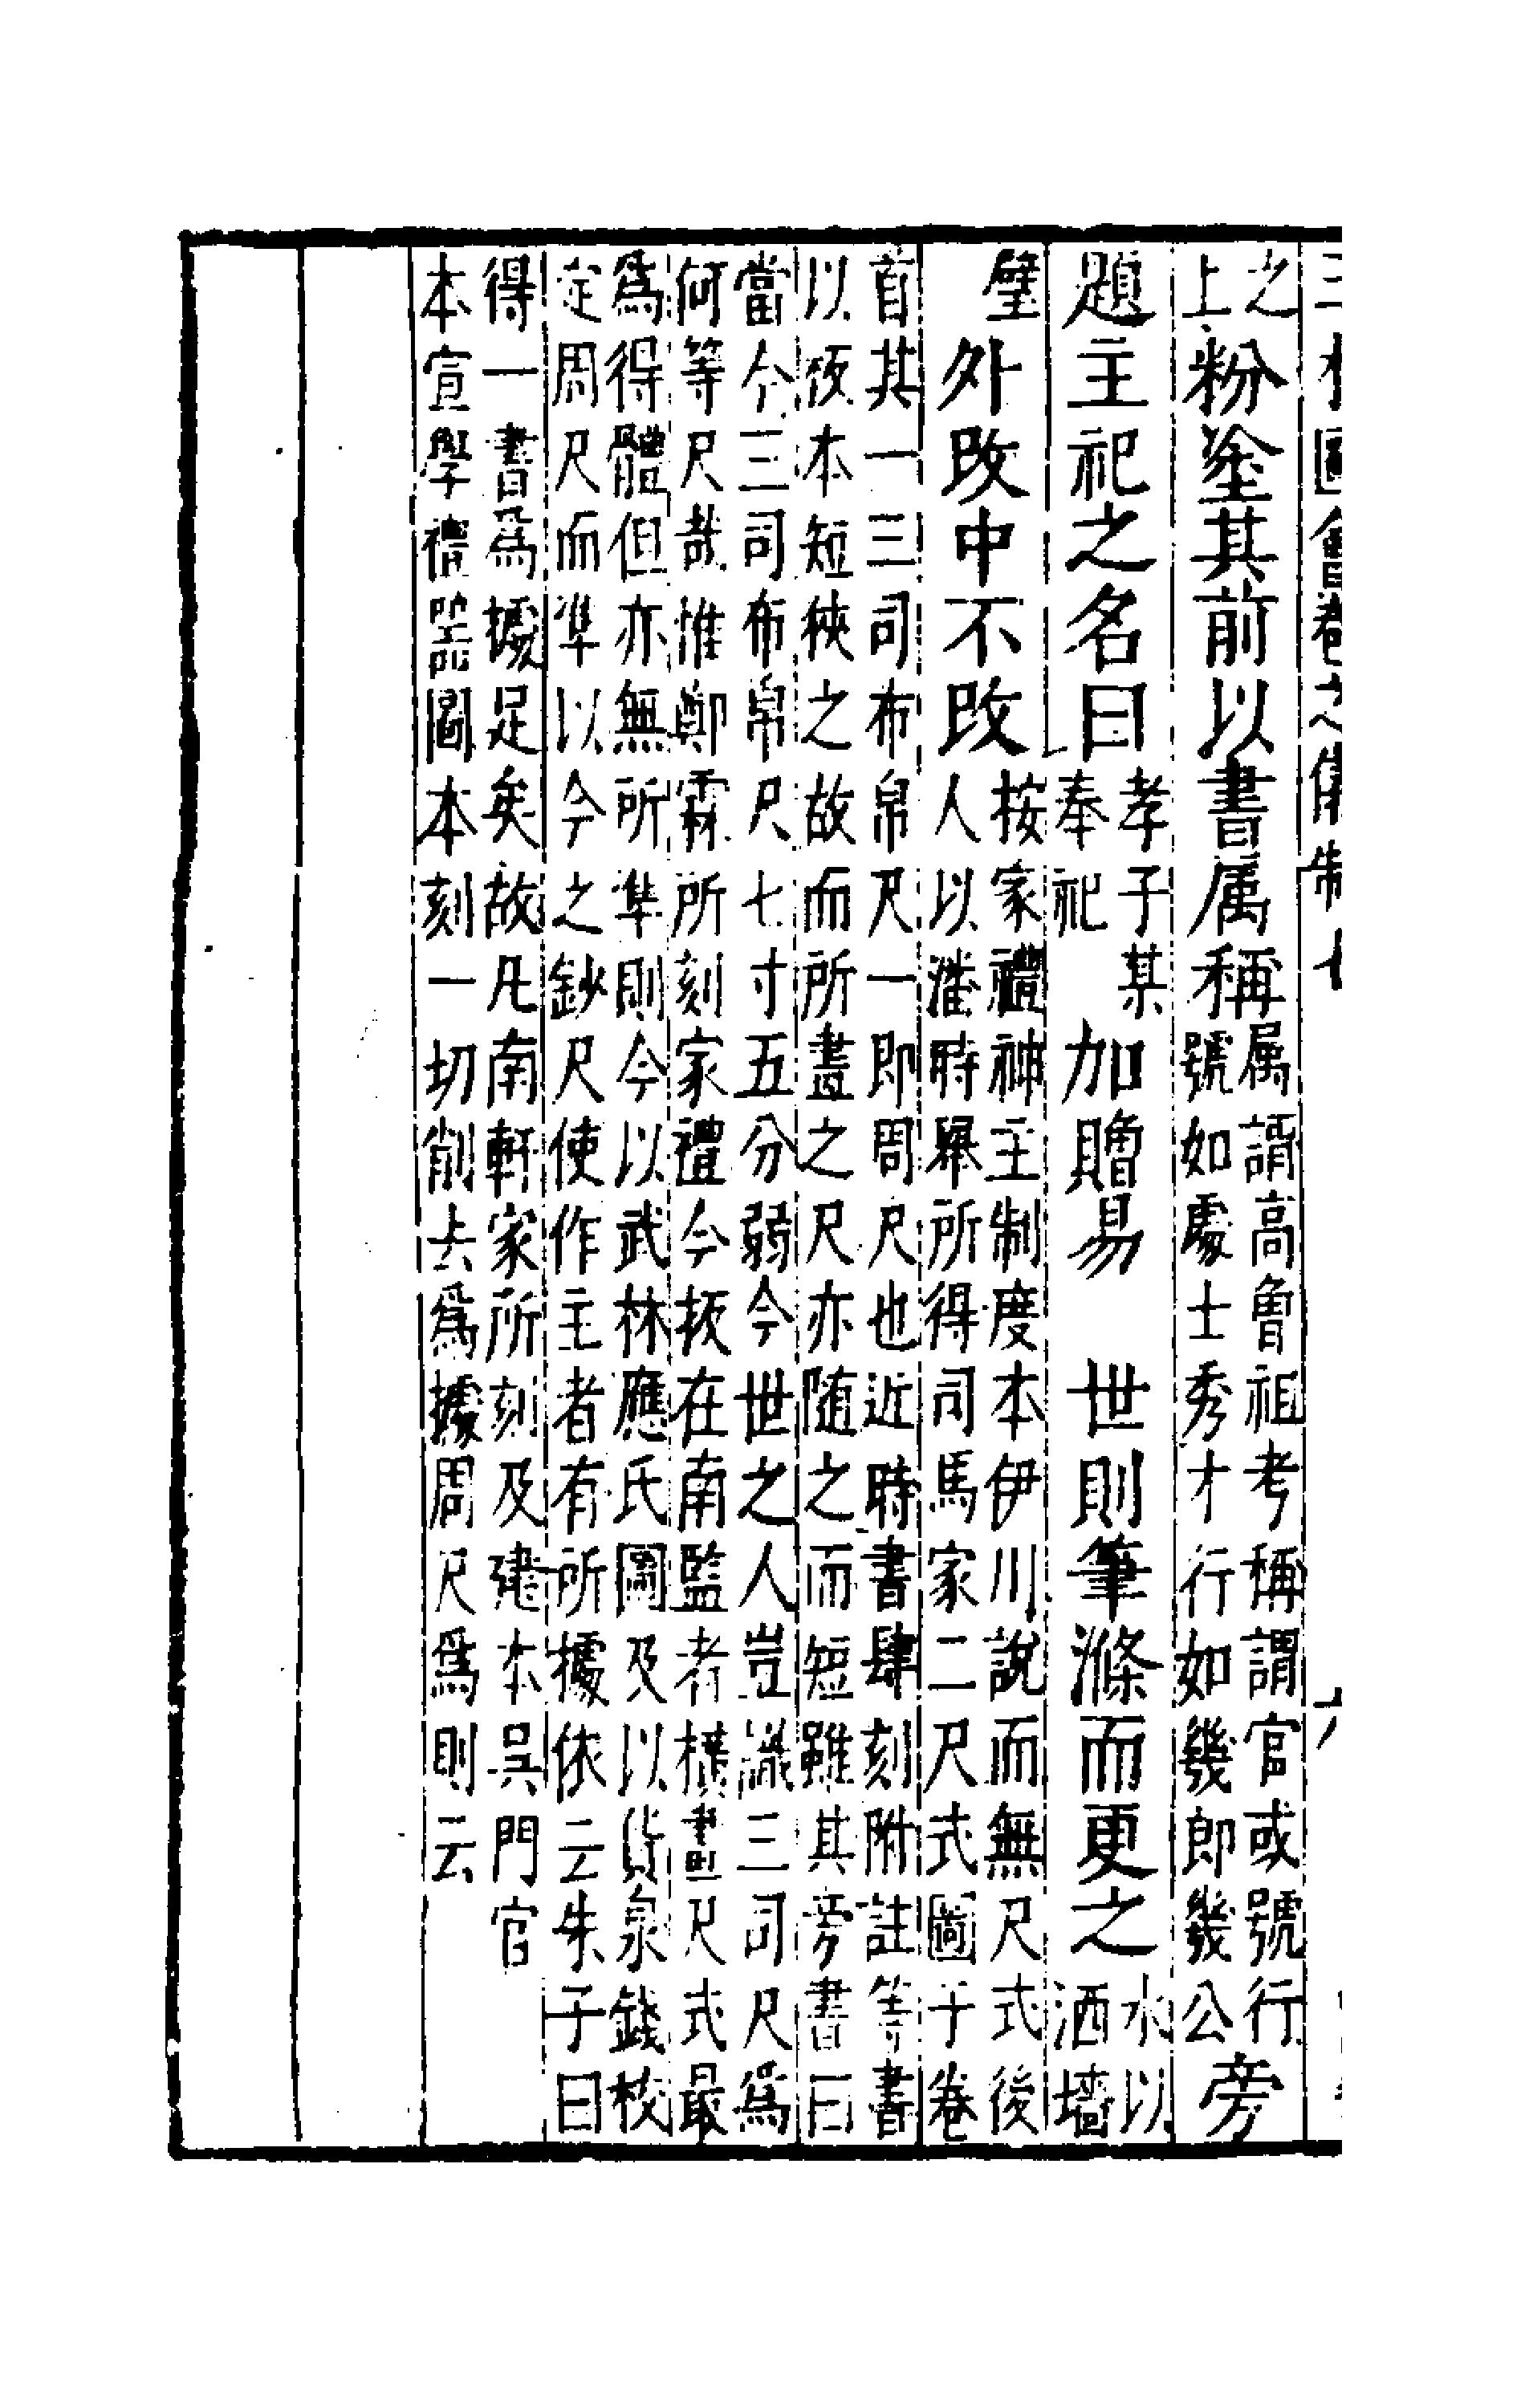 三才圖會卷之儀制七
之
上
粉塗其前以書属稱
属謂高曾祖考稱謂官或號行
號如處士秀才行如幾郎幾公
旁
題主祀之名曰
孝子某
奉祀
加贈易 世則筆滌而更之
水以
洒墻
璧
外改中不改
按家禮神主制度本伊川說而無尺式後
人以潘時舉所得司馬家二尺式圖于卷
首其一三司布帛尺一即周尺也近時書肆刻附註等書
以板本短狹之故而所畫之尺亦随之而短雖其旁書曰
當今三司布帛尺七寸五分弱今世之人豈識三司尺爲
何等尺哉惟鄭霖所刻家禮今板在南監者橫畫尺式最
爲得體但亦無所準則今以武林應氏圖及以貨泉錢校
定周尺而準以今之鈔尺使作主者有所據依云朱子曰
得一書爲據足矣故凡南軒家所刻及建本吳門官
本宣學禮器圖本刻一切削去爲據周尺爲則云